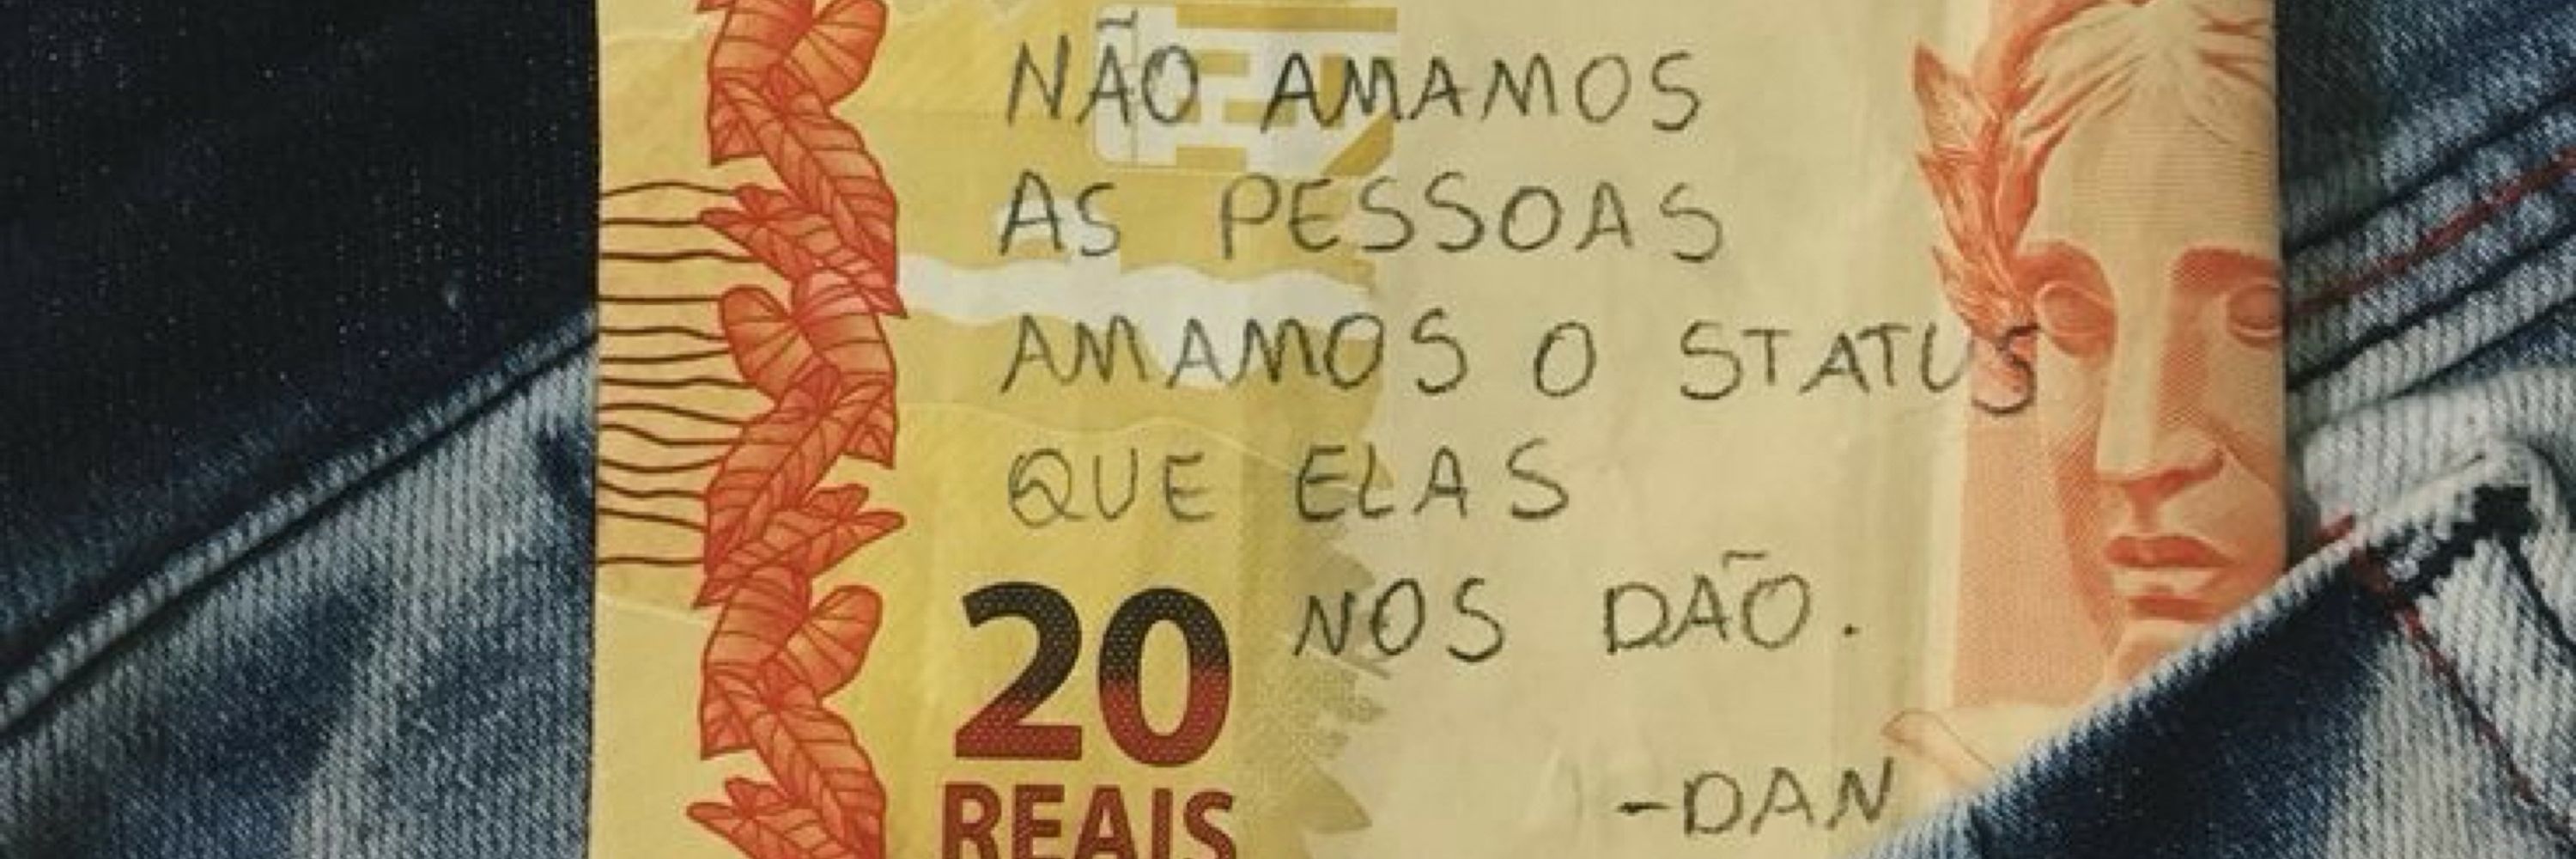 NÃO AMAMOS
AS PESSOAS
AMAMOS O STATUS
QUE ELAS
NOS DÃO.
20
REAIS
-DAN